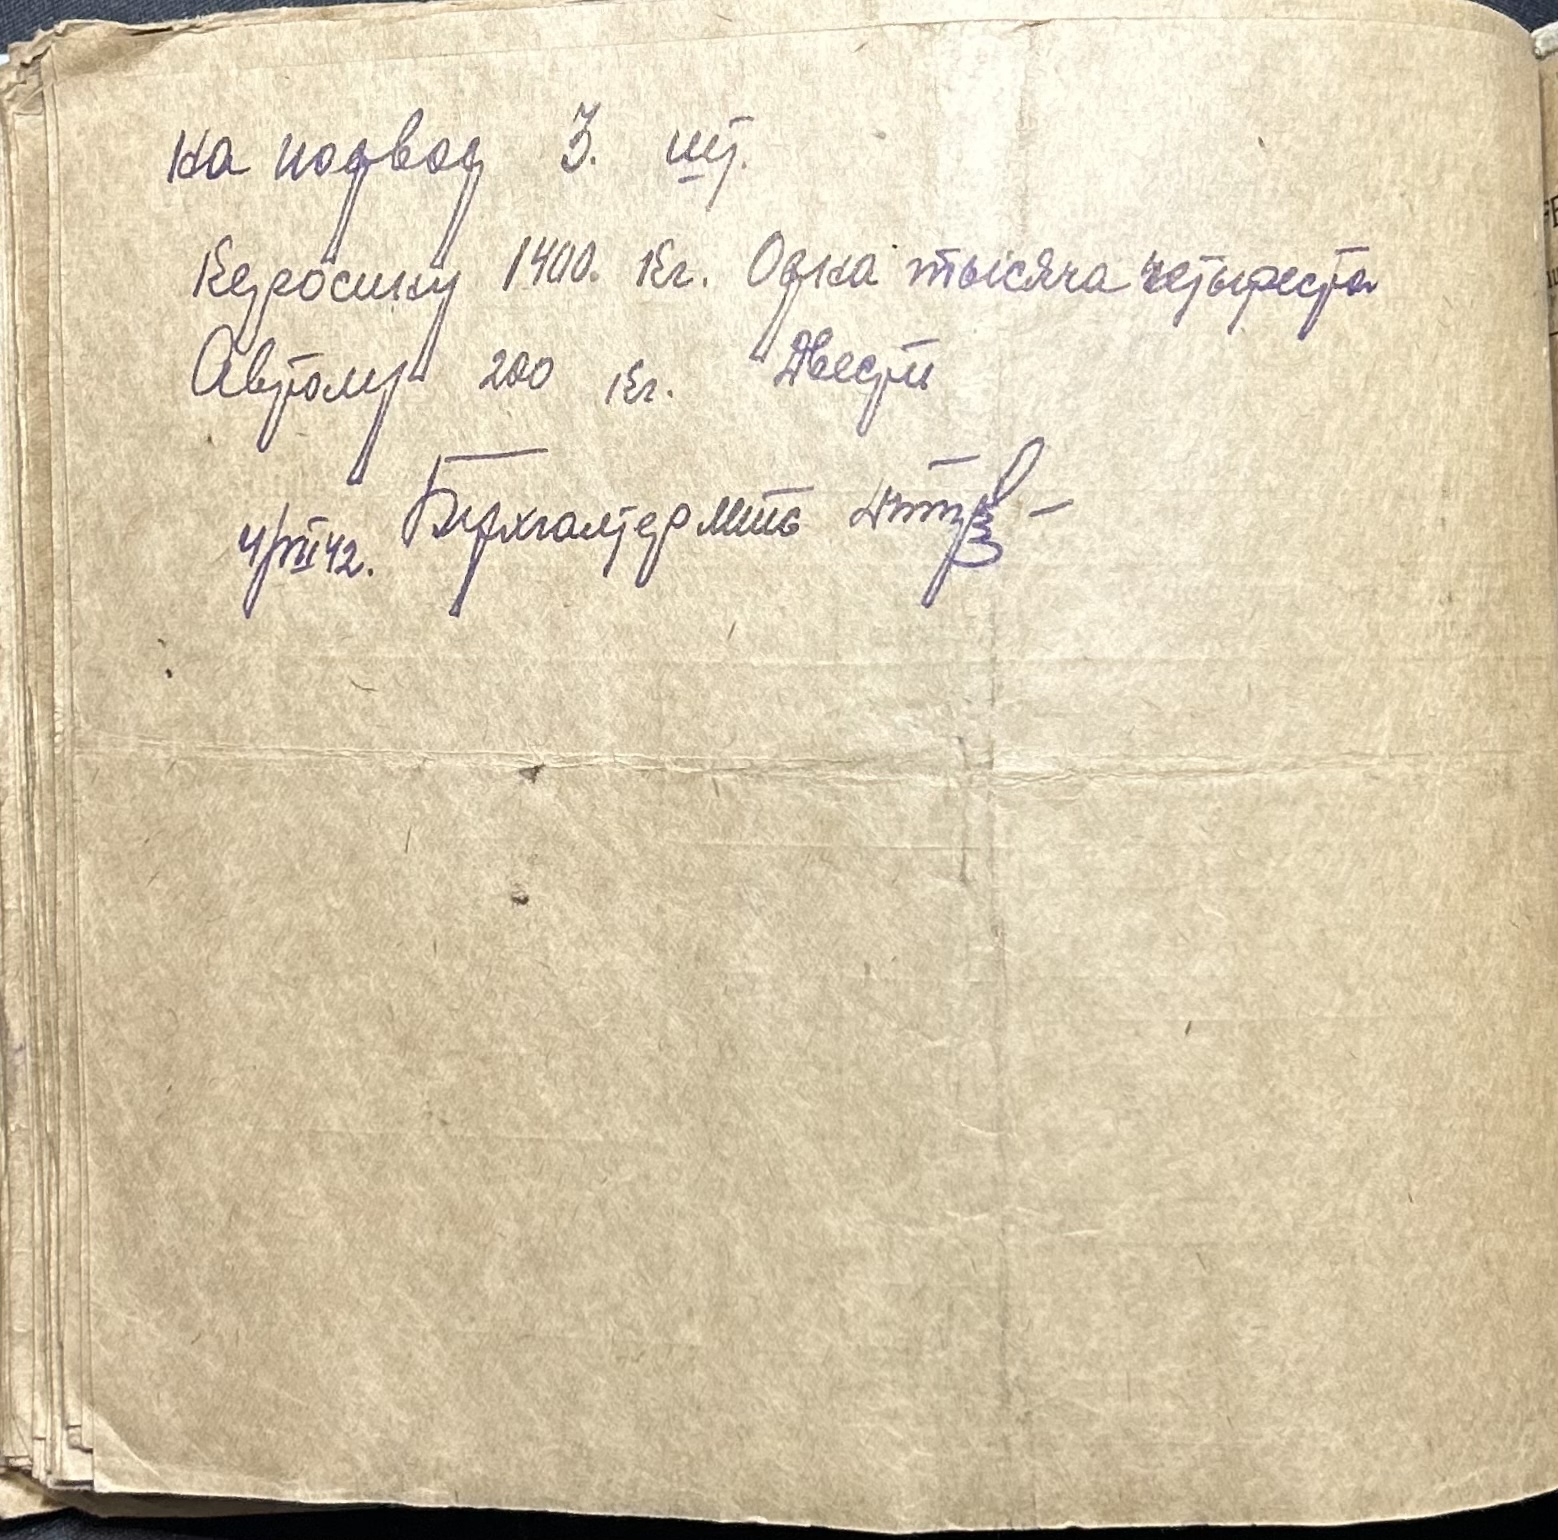 на подвод 3. шт.
Керосину 1400. кг. Одна тысяча четыреста
Автолу 200 кг. Двести
4/VII 42. Бухгалтер МТС